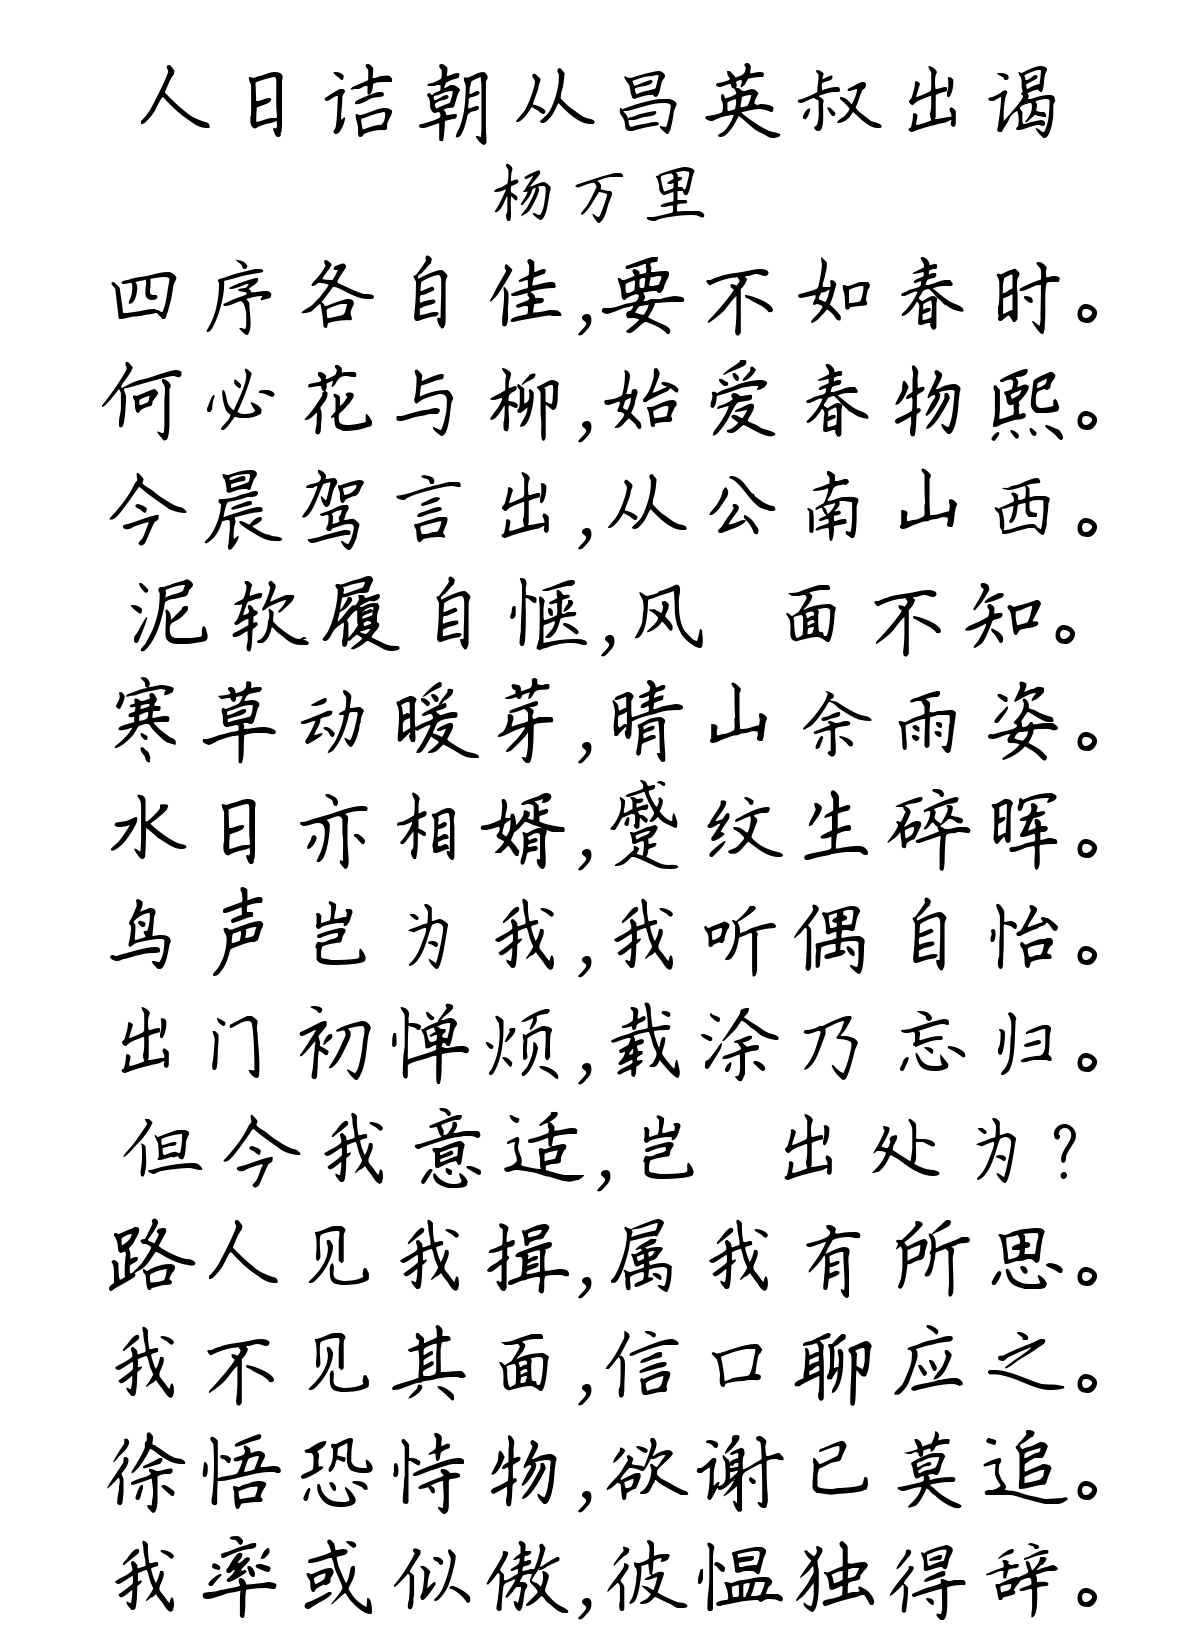 人日诘朝从昌英叔出谒
杨万里
四序各自佳,要不如春时。
何必花与柳,始爱春物熙。
今晨驾言出,从公南山西。
泥软履自惬,风 面不知。
寒草动暖芽,晴山余雨姿。
水日亦相婿,蹙纹生碎晖。
鸟声岂为我,我听偶自怡。
出门初惮烦,载涂乃忘归。
但今我意适,岂 出处为?
路人见我揖,属我有所思。
我不见其面,信口聊应之。
徐悟恐恃物,欲谢已莫追。
我率或似傲,彼愠独得辞。